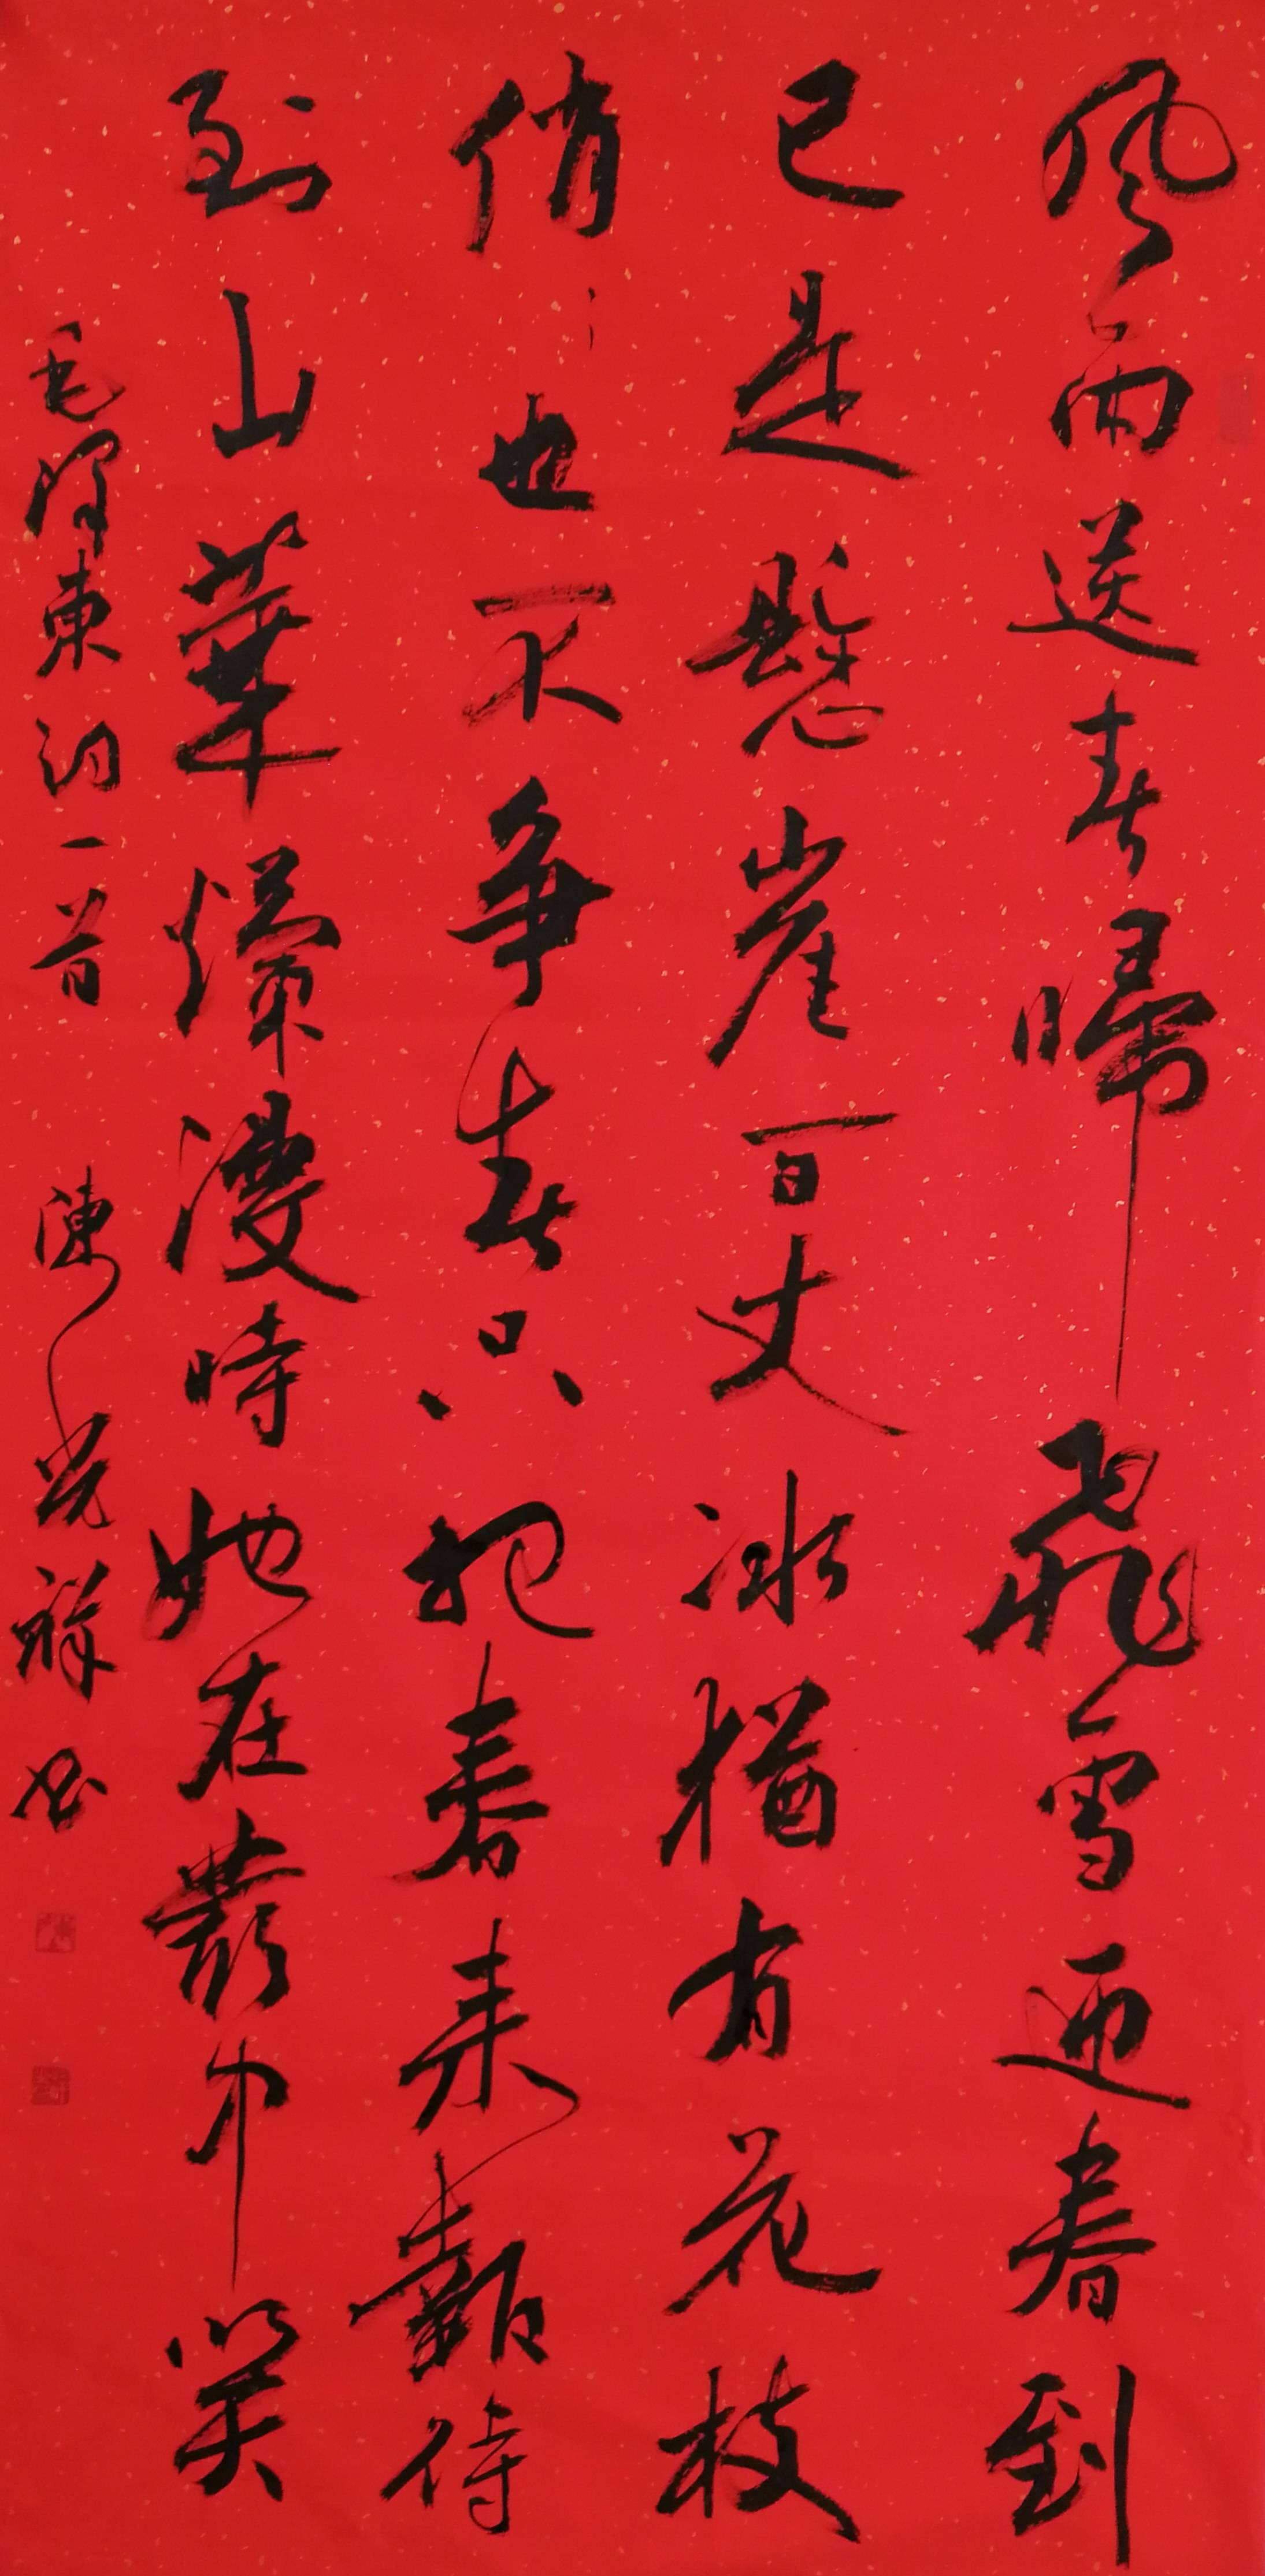 風雨送春歸飛雪迎春到
已是懸崖百丈冰猶有花枝
俏也不争春只把春來報待
到山華爛漫時她在叢中笑
毛澤東詞一首 陳光祥書